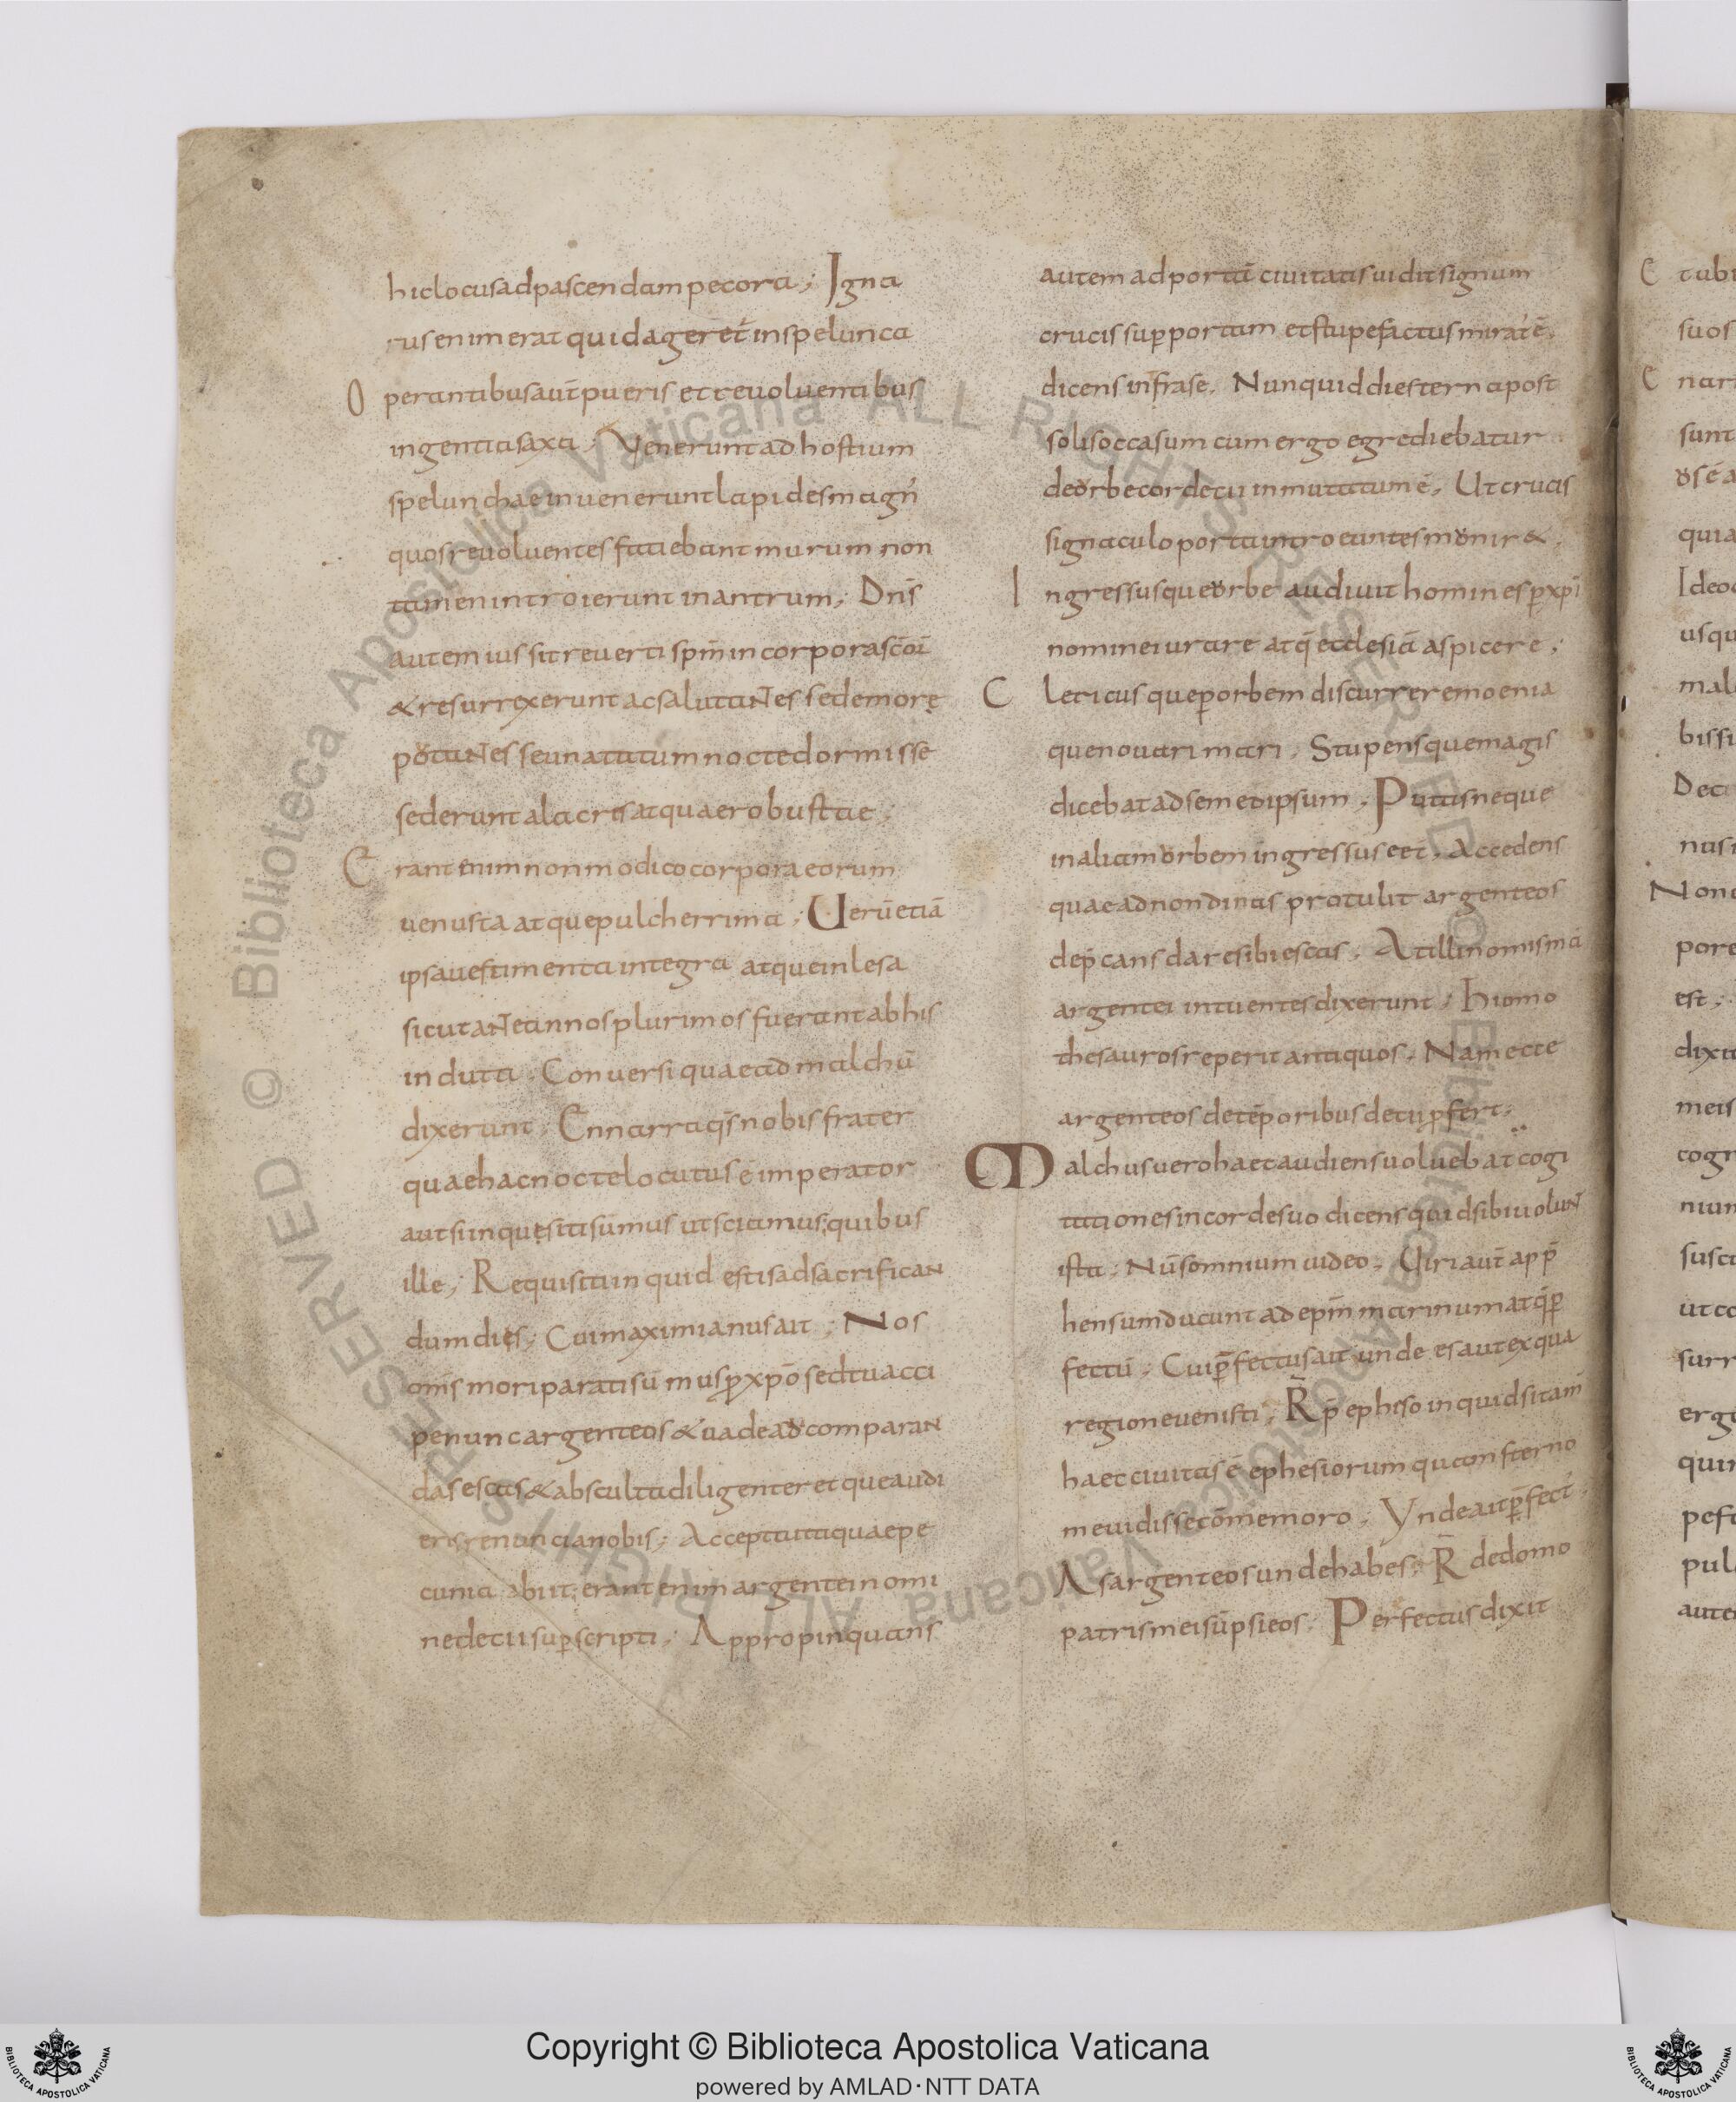 hic locus ad pascendam pecora; Igna
rus enim erat quid ageret̄ in spelunca
O perantibus aut̄ pueris et revoluentibus
ingentia saxa; Venerunt ad hostium
spelunchae invenerunt lapides magn̄
quos revoluentes faciebant murum non
tamen introierunt in antrum; Dn̄s
autem iussit reverti spm̄ in corpora sc̄oi
& resurrexerunt ac salutaNTes se de more
potaNTes seu natatum nocte dormisse
sederunt alacris atquae robustiae;
E rant enim non modico corpora eorum
uenusta atque pulcherrima; Uerū etiā
ipsa uestimenta integra atque inlesa
sicut aNTe annos plurimos fuerant ab his
induta. Conuersi quae ad malchū
dixerunt. Ennarra qs̄ nobis frater
quae hac nocte locutus ē imperator
aut si inquęsiti sumus ut sciamus; quibus
ille; Requisita inquid estis ad sacrificaN
dum dięs; Cui maximianus ait; Nos
om̄s mori parati sūmus p xpō sed tu acci
pe nunc argenteos & uade ad comparaN
das escas & absculta diligenter et que audi
eris renuncia nobis; Accepta itaquae pe
cunia abiit; erant enim argentei nomi
ne decii sup scripti; Appropinquans
autem ad portā ciuitatis uidit signum
crucis sup portam et stupefactus mirat̄ ē
dicens infra se. Nunquid diesterna post
solis occasum cum ergo egrediebatur
de orbe cor decii inmutatum ē, Ut crucis
signaculo porta introeuntes munir&.
I ngressusque orbe audiuit homines p xpī
nomine iurare atq̄ ecclesiā aspicere;
C lericusque p orbem discurrere moenia
que nouari mari. Stupensque magis
dicebat ad semetipsum. Putas neque
in aliam orbem ingressus eet. Accedens
quae ad nondinas protulit argenteos
dep̄cans dare sibi escas. At illi nomisma
argentei intuentes dixerunt; Hic homo
thesauros reperit antiquos. Nam ecce
argenteos de tēporibus decii pfert;
M alchus uero haec audiens uoluebat cogi
tationes in corde suo dicens quid sibi uoluNT
ista; Nū somnium uideo. Uiri aut̄ app̄
hensum ducunt ad epm̄ marinum atq̄ p̄
fectū; Cui p̄fectus ait unde es aut ex qua
regione uenisti; R̄p̄ epheso inquid si tam̄
haec ciuitas ē ephesiorum qū con sterno
me uidisse cōmemoro. Vnde ait p̄fect̄.
As argenteos unde habes; R̄ de domo
patris mei sūpsi eos. Perfectus dixit
Copyright © Biblioteca Apostolica Vaticana
powered by AMLAD·NTT DATA